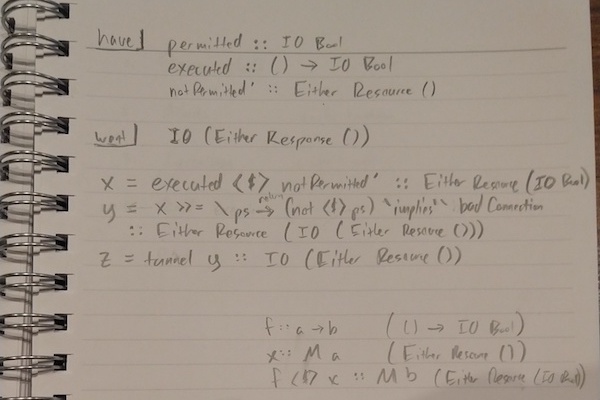 have] permitted :: IO Bool
executed :: () → IO Bool
notPermitted' :: Either Resource ()
want] IO (Either Response ())
x = executed <$> notPermitted' :: Either Resource (IO Bool)
y = x >>= \ps → return (not <$> ps) `implies'` bad Connection
:: Either Resource (IO (Either Resource ()))
z = tunnel y :: IO (Either Resource ())
f :: a → b (() → IO Bool)
x :: M a (Either Resource ())
f <$> x :: M b (Either Resource (IO Bool))